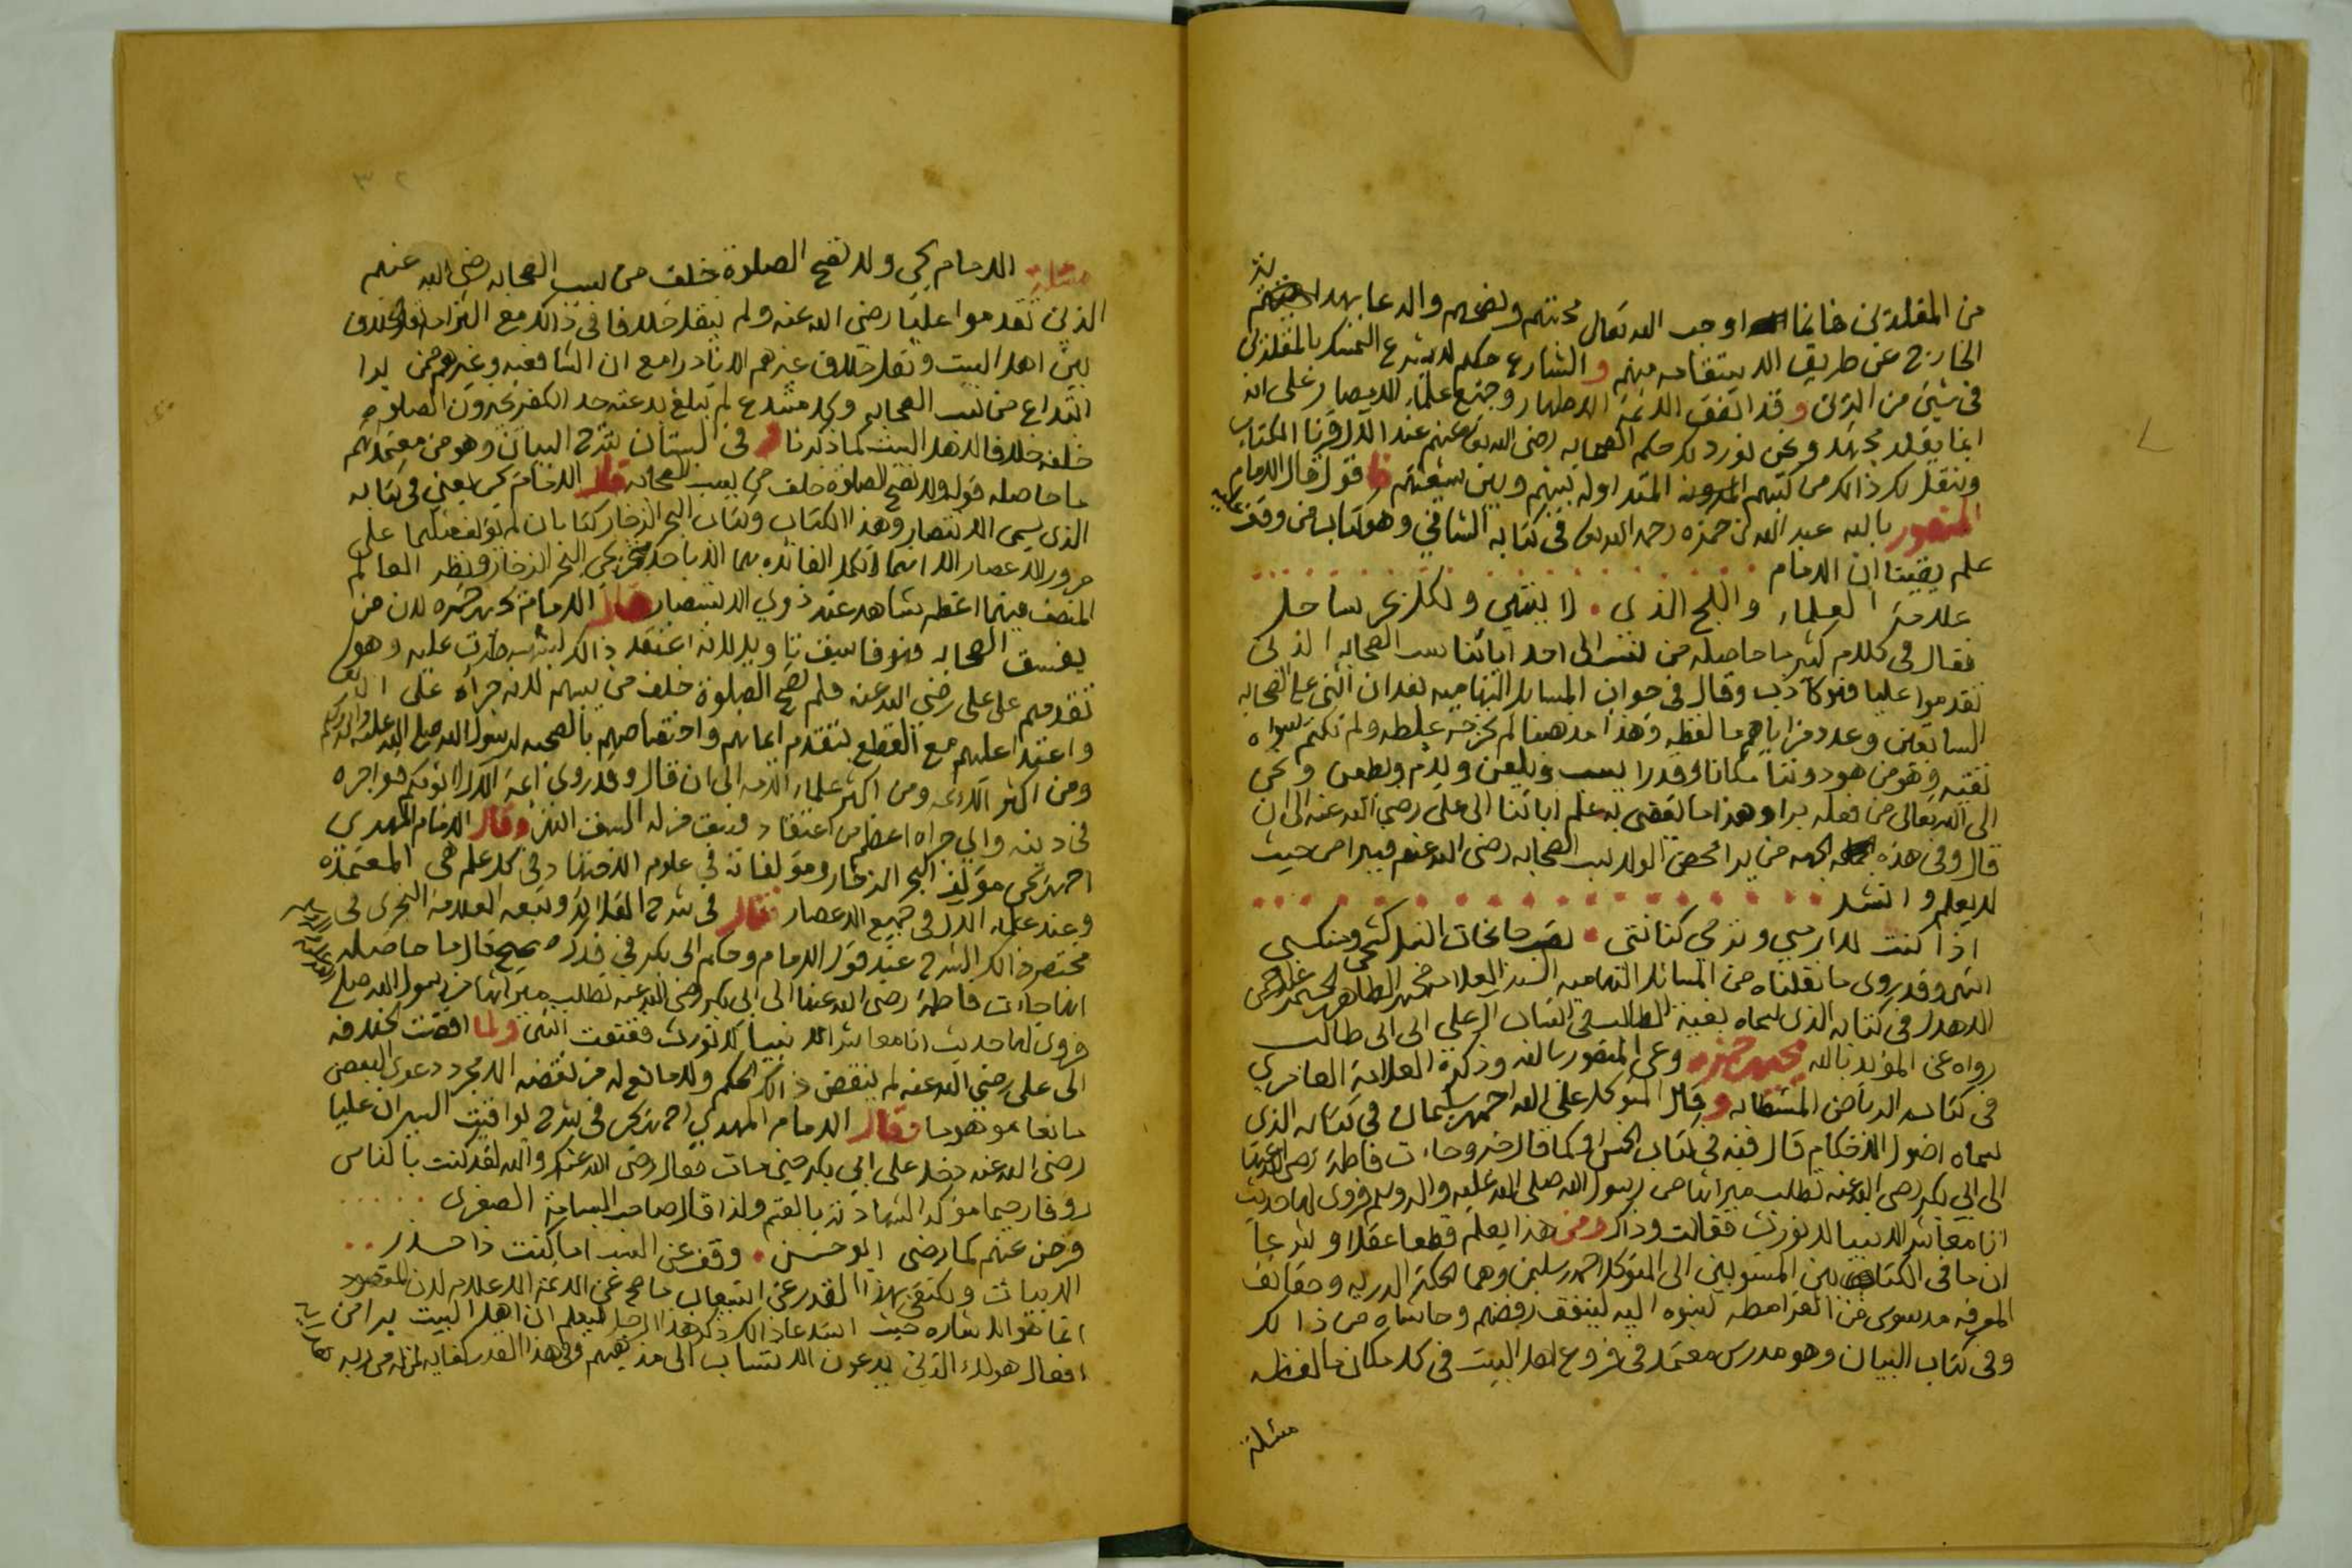 من المقلدين فانما اوجب الله تعالى محبتهم ونصحهم والدعا بهدايتهم
الخارج عن طريق الاستقامه منهم والشارع حكم لا يشرع التمسك بالمقلدين
في شيئ من الدين وقد اتفق الائمة الاطهار وجميع علماء الامصار على انه
انما يقلد مجتهد ونحن نورد لك حكم الصحابه رضي الله تعالى عنهم عند الال وقرنا الكتاب
وننقل لك ذالك من كتبهم المدونه المتداوله بينهم وبين شيعتهم فاقول قال الامام
المنصور بالله عبد الله بن حمزه رحمه الله تعالى في كتابه الشافي وهو كتاب من وقف عليه
علم يقينا ان الامام
علامة العلماء واللج الذي لا ينتهي ولكل بحر ساحل
فقال في كلام كثير ما حاصله من نسب الى احد ابائنا سب الصحابه الذين
تقدموا عليا فهو كاذب وقال في جواب المسايل التهاميه بعد ان اثنى على الصحابه
السابقين وعدد مزاياهم ما لفظه وهذا مذهبنا لم نخرجه غلطه ولم نكتم سواه
تقيه وهو من هو دوننا مكانا وقدرا يسب ويلعن ويذم ويطعن ونحن
الى الله تعالى من فعله برا وهذا ما يقضي به علم ابائنا الى علي رضي الله عنه الى ان
قال وفي هذه الجهه من يرا محض الولا سب الصحابه رضي الله عنهم فيبرا من حيث
لا يعلم وانشد
اذا كنت لا ارمي وترمي كنانتي تصب جانحات النبل كشحي ومنكبي
انتهى وقد روى ما نقلناه من المسائل التهاميه السيد العلامه محمد بن الطاهر
الاهدل في كتابه الذي سماه بغية الطالب في انساب ال علي الى ابي طالب
رواه عن المؤيد بالله يحيى بن حمزه وعن المنصور بالله وذكره العلامة العامري
في كتابه الرياض المستطابه وقال المتوكل على الله احمد بن سليمان في كتابه الذي
سماه اصول الاحكام قال فيه في كتاب الخمس وكما قال خبر وجاءت فاطمة رضي الله عنها
الى ابي بكر رضي الله عنه تطلب ميراثها من رسول الله صلى الله عليه واله وسلم فروى لها حديث
انا معاشر الانبيا لا نورث فقالت وذاك ومن هذا يعلم قطعا عقلا وشرعا
ان ما في الكتابين المنسوبين الى المتوكل احمد بن سليمن وهما الحكمة الدريه وحقائق
المعرفه مدسوس من القرامطه نسبوه اليه لينفق رفضهم وحاشاه من ذالك
وفي كتاب البيان وهو مدرس معتمد في فروع اهل البيت في كل مكان ما لفظه
مسئلة
مسئلة الامام يحيى ولا تصح الصلوة خلف من يسب الصحابه رضي الله عنهم
الذين تقدموا عليا رضي الله عنه ولم ينقل خلافا في ذالك مع التزامه نقل الخلاف
بين اهل البيت ونقل خلاف غيرهم الا نادرا مع ان الشافعيه وغيرهم ممن يرا
ابتداع من يسب الصحابه وكل مبتدع لم تبلغ بدعته حد الكفر يجيزون الصلوة
خلفه خلافا لاهل البيت كما ذكرنا وفي البستان شرح البيان وهو من معتمداتهم
ما حاصله قوله ولا تصح الصلوة خلف من يسب الصحابه قال الامام يحيى يعني في كتابه
الذي يسمى الانتصار وهذا الكتاب وكتاب البحر الزخار كتابان لم يؤلف مثلهما على
مرور الاعصار الا انها لا تكمل الفائده بهما الا باحاديث البحر الزخار ونظر العالم
المنصف فيهما اعظم شاهد عند ذوي الاستبصار قال الامام يحيى بن حمزه لان من
يفسق الصحابه فهو فاسق تاويل لانه اعتقد ذالك لشبهه طرت عليه وهو
تقدمهم على علي رضي الله عنه فلم تصح الصلوة خلف من يسبهم لانه جرأة على الله
واعتدا عليهم مع القطع بتقدم ايمانهم واختصاصهم بالصحبه لرسول الله صلى الله عليه واله وسلم
ومن اكثر الائمه ومن اكثر علماء الامه الى ان قال وقد روى ائمة الال لا تؤمنكم ذو اجره
في دينه واي جراه اعظم من اعتقاد فسق من له السبق انتهى وقال الامام المهدي
احمد بن يحيى مؤلف البحر الزخار ومؤلفاته في علوم الاجتهاد وفي كل علم هي المعتمده
وعند علماء الال في جميع الاعصار قال في شرح القلائد وتبعه العلامة النجري في
مختصر ذالك الشرح عند قول الامام وحكم ابي بكر في فدك صحيح قال ما حاصله
انها جاءت فاطمة رضي الله عنها الى ابي بكر رضي الله عنه تطلب ميراثها من رسول الله صلعم
فروى لها حديث انا معاشر الانبيا لا نورث فقنعت انتهى ولما افضت الخلافه
الى علي رضي الله عنه لم ينقض ذالك الحكم ولا مانع له من نقضه الا مجرد دعوى البعض
مانعا موهوما وقال الامام المهدي احمد بن يحيى في شرح يواقيت السير ان عليا
رضي الله عنه دخل على ابي بكر حين مات فقال رضي الله عنك والله لقد كنت بالناس
روفا رحيما مؤكد الشهادته بالقسم ولذا قال صاحب البسامة الصغرى
فرض عنهم كما رضي ابو حسن وقف عن السب اما كنت ذا حذر
الابيات ونكتفي بهذا القدر عن استيعاب ما صح عن الائمة الاعلام لان المقصود
انما هو الاشاره حيث استدعا ذالك ذكر هذا الرجل ليعلم ان اهل البيت برا من
افعال هولاء الذين يدعون الانتساب الى مذهبهم وفي هذا القدر كفايه لمن له من ربه